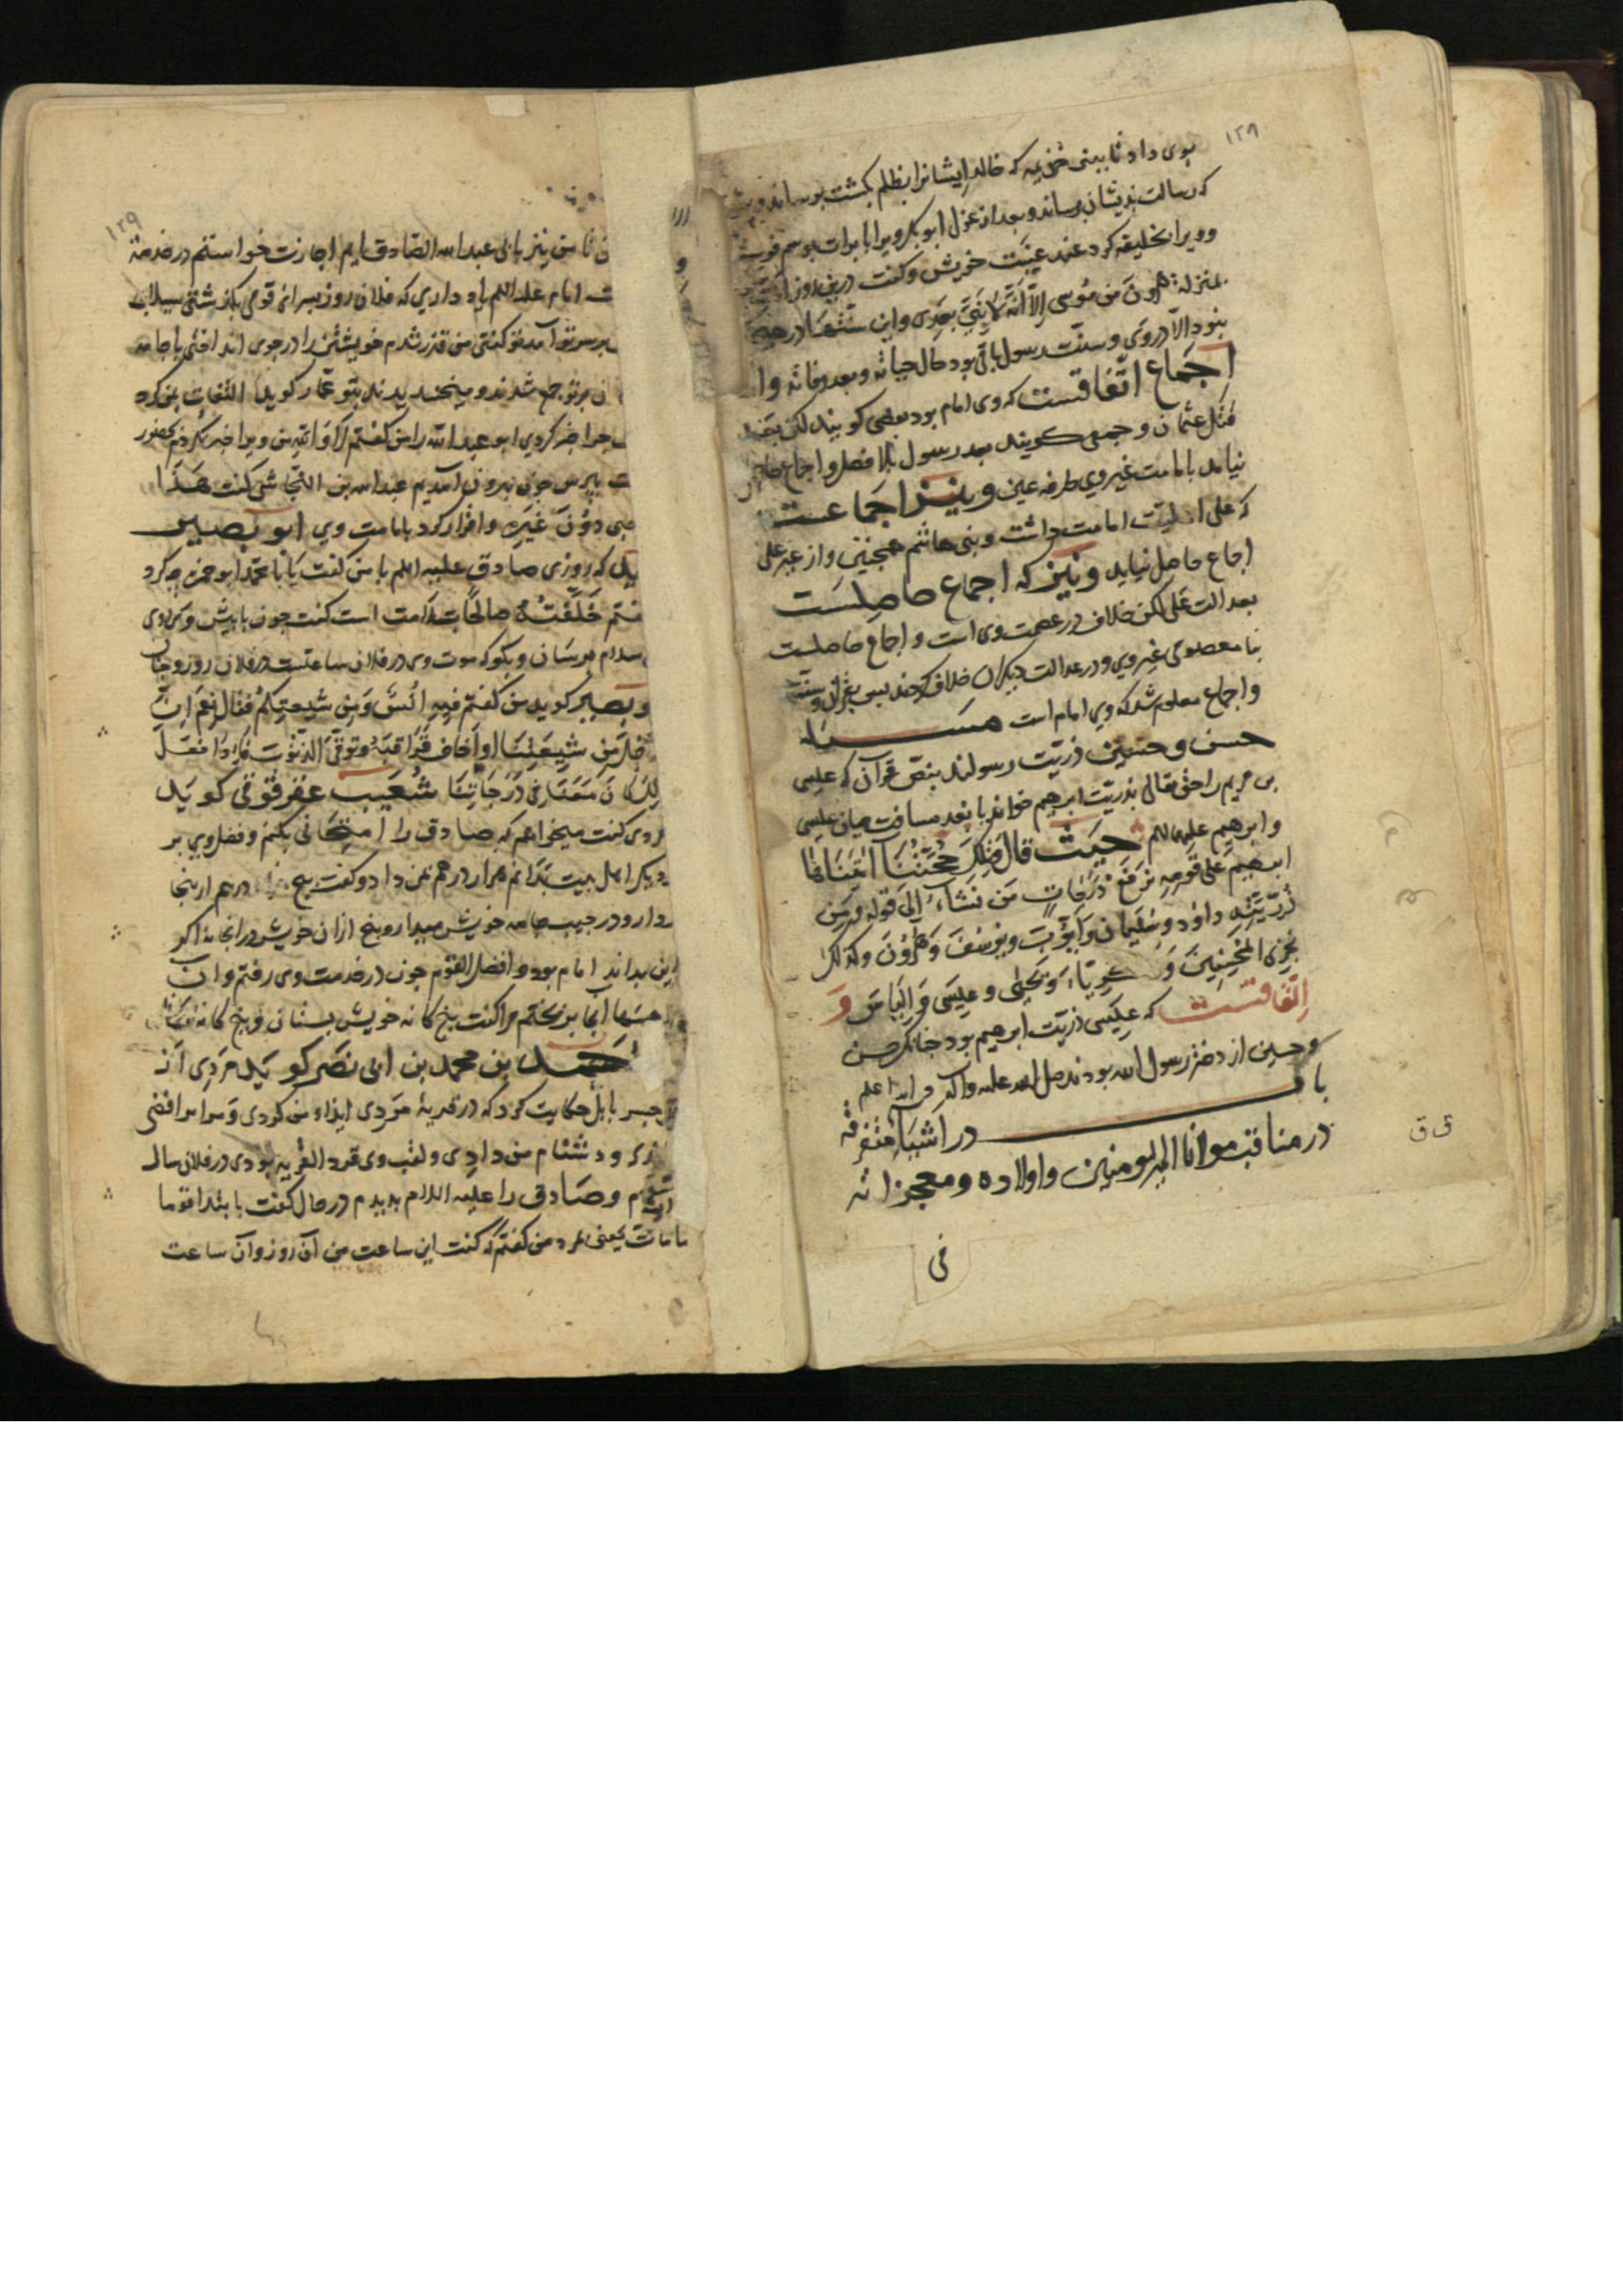 ۱۲۹
بوی داد تا ببنی خزیمه که خالد ایشانرا بظلم بکشت برساند و
که رسالت بدیشان برساند و بعد از عزل ابو بکر ویرا با برات بموسم فرستاد
و ویرا خلیفه کرد عند غیبت خویش و کفت
بمنزلة هرون من موسی الّا انّه لا نبیّ بعدی و این
نبود الّا در وی و سنّت رسول باقی بود حال حیاته و بعد وفاته و
اجماع اتّفاقست که وی امام بود بعضی کویند لکن بعد
قتل عثمان و جمعی کویند بعد رسول بلا فصل و اجماع حاصل
نیامد بامامت غیر وی طرفه عین و نیز اجماعست
که علی اهلیّت امامت داشت و بنی هاشم همچنین و از غیر علی
اجماع حاصل نیاید و نیز که اجماع حاصلست
بعدالت علی لکن خلاف در عصمت وی است و اجماع حاصلست
بنا معصومی غیر وی و در عدالت دیکران خلاف کردند پس بقرآن و سنّت
و اجماع معلوم شد که وی امام است مسئله
حسن و حسین ذریّت رسولند بنصّ قرآن که عیسی
بن مریم را حق تعالی بذریّت ابرهیم خواند با بعد مسافت میان عیسی
و ابرهیم علیهم السلم حیث قال وَتِلْكَ حُجَّتُنَا آتَيْنَاهَا
ابرهیم عَلَى قَوْمِهِ نَرْفَعُ دَرَجَاتٍ مَن نَشَاءُ إلى قوله وَمِن
ذُرِّيَّتِهِ داوُد وسُلَیمان وَأَيُّوبَ ويُوسُفَ وَهرُونَ وكذلك
نجزی المُحْسِنِينَ وَزكريّاءَ وَيَحْيَى وعِيسَى وَإِلْيَاسَ وَ
اتّفاقست که عیسی ذریّت ابرهیم بود چنانکه حسن
و حسین از دختر رسول الله بودند صلی الله علیه وآله و الله اعلم
باب در اشیاء متفرقه
در مناقب مولانا امیر المومنین و اولاده و معجزاته
فی
ق ق
۱۲۹
من نیز بابی عبد الله الصّادق ایم اجازت خواستم در خدمة
امام علیه السلم یاد داری که فلان روز بسرای قومی بکذشتی سیلاب
بر سر تو آمد تو کفتی من قذر شدم خویشتن را در جوی انداختی با جامه
بر تو جمع شدند و میخندیدند بتو عمّار کوید التفات بمن کرد
چرا خبر کردی ابو عبد الله را من کفتم لا والله من ویرا خبر نکردم بحضور
بپرس چون بیرون آمدیم عبد الله بن النّجاشی کفت هَذَا
صاحبی دُونَ غَیرِه و اقرار کرد بامامت وی ابو بصیر
کوید که روزی صادق علیه السلم با من کفت یا با محمّد ابو حمزه چه کرد
کفتم خَلَّفْتُهُ صالحًا کفت چون بازپیش وی روی
سلام برسان و بکو که موت وی در فلان ساعتست در فلان روز و چنان
ابو بصیر کوید من کفتم فِیهِ اُنْسٌ وَمِن شِیعَتِکُم فقال نعم اِنَّ
الرجل من شِیعَتِنَا اِذا خاف الله فَرَاقَبَهُ وَتوقّی الذُّنوب فَاِذا فعَلَ
ذلك کانَ مَعَنَا فی دَرَجَاتِنَا شُعَیب عقرقوفی کوید
مردی کفت میخواهم که صادق را امتحانی بکنم و فضل وی بر
دیکر اهل بیت بدانم هزار درهم بمن داد و کفت پنج درهم از اینجا
بردار و در جیب جامه خویش میدار و پنج از ان خویش در انجا نه اکر
این بداند امام بود و افضل القوم چون در خدمت وی رفتم و آن
درهمها آنجا بریختم مرا کفت پنج کانه خویش بستان و پنج کانه ما
احمد بن محمد بن ابی نصر کوید مردی از
جسر بابل حکایت کرد که در قریهٔ مردی ایذاء من کردی و مرا رافضی
خواندی و دشنام من دادی و لقب وی قرد القریه بودی در فلان سال
و صادق را علیه السلام بدیدم در حال کفت بابتدا قوما
مات یعنی بمرد من کفتم کی کفت این ساعت من آن روز و آن ساعت